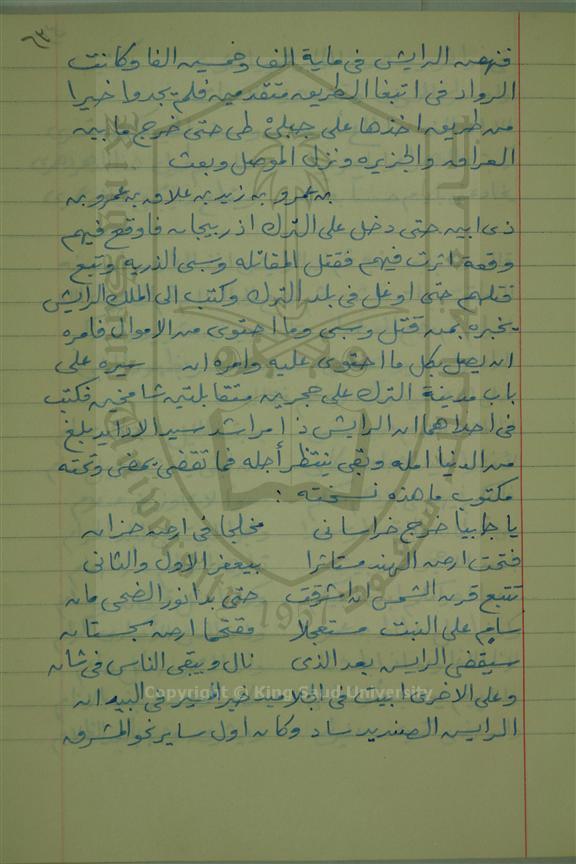 ٦٣
فنهض الرايش في ماية الف وخمسين الفا وكانت
الرواد في اتبغا الطريق متقدمين فلم يجدوا خيرا
من طريق اخذها على جبلي طي حتى خرج ما بين
العراق والجزيره ونزل الموصل وبعث
بن عمرو بن زيد بن علاق بن عمرو بن
ذي ابين حتى دخل على الترك اذربيجان فاوقع فيهم
وقعة اثرت فيهم فقتل المقاتله وسبى الذريه وتبع
قتلهم حتى اوغل في بلد الترك وكتب الى الملك الرايش
يخبره بمن قتل وسبى وما احتوى من الاموال فامره
ان يصل بكل ما احتوى عليه وامره ان سيره على
باب مدينة الترك على حجرين متقابلتين شامخين فكتب
في احداهما ان الرايش ذا مراشد سيد الاوايد بلغ
من الدنيا امله وبقي ينتظر أجله فما تقضى يمضي وتحته
مكتوب ما هذه نسخته :
يا جابيا خرج خراساني مخلجا في ارض حزان
فتحت ارض الهند مستاثرا بيعفر الاول والثاني
تتبع قرن الشمس ان اشرقت حتى بدا نور الضحى مان
سام على النبت مستعجلا ففتحها ارض سجستان
سيقضى الرايس بعد الذي نال ويبقى الناس في شان
وعلى الاخرى ابيت في الجلاميد خير المسير في البيد ان
الرايس الصنديد ساد وكان اول ساير نحو المشرق
Copyright © King Saud University
King Saud University
1957